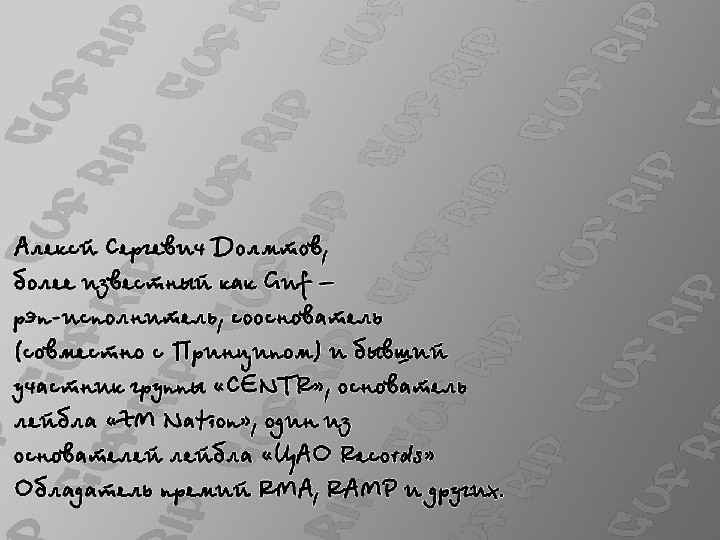 Алексй Сергевич Долмтов,
более известный как Guf –
рэп-исполнитель, сооснователь
(совместно с Принципом) и бывший
участник группы «CENTR», основатель
лейбла «ZM Nation», один из
основателей лейбла «ЦАО Records»
Обладатель премий RMA, RAMP и других.
GUF RIP
GUF RIP
GUF RIP
GUF RIP
GUF RIP
GUF RIP
GUF RIP
GUF RIP
GUF RIP
GUF RIP
GUF RIP
GUF RIP